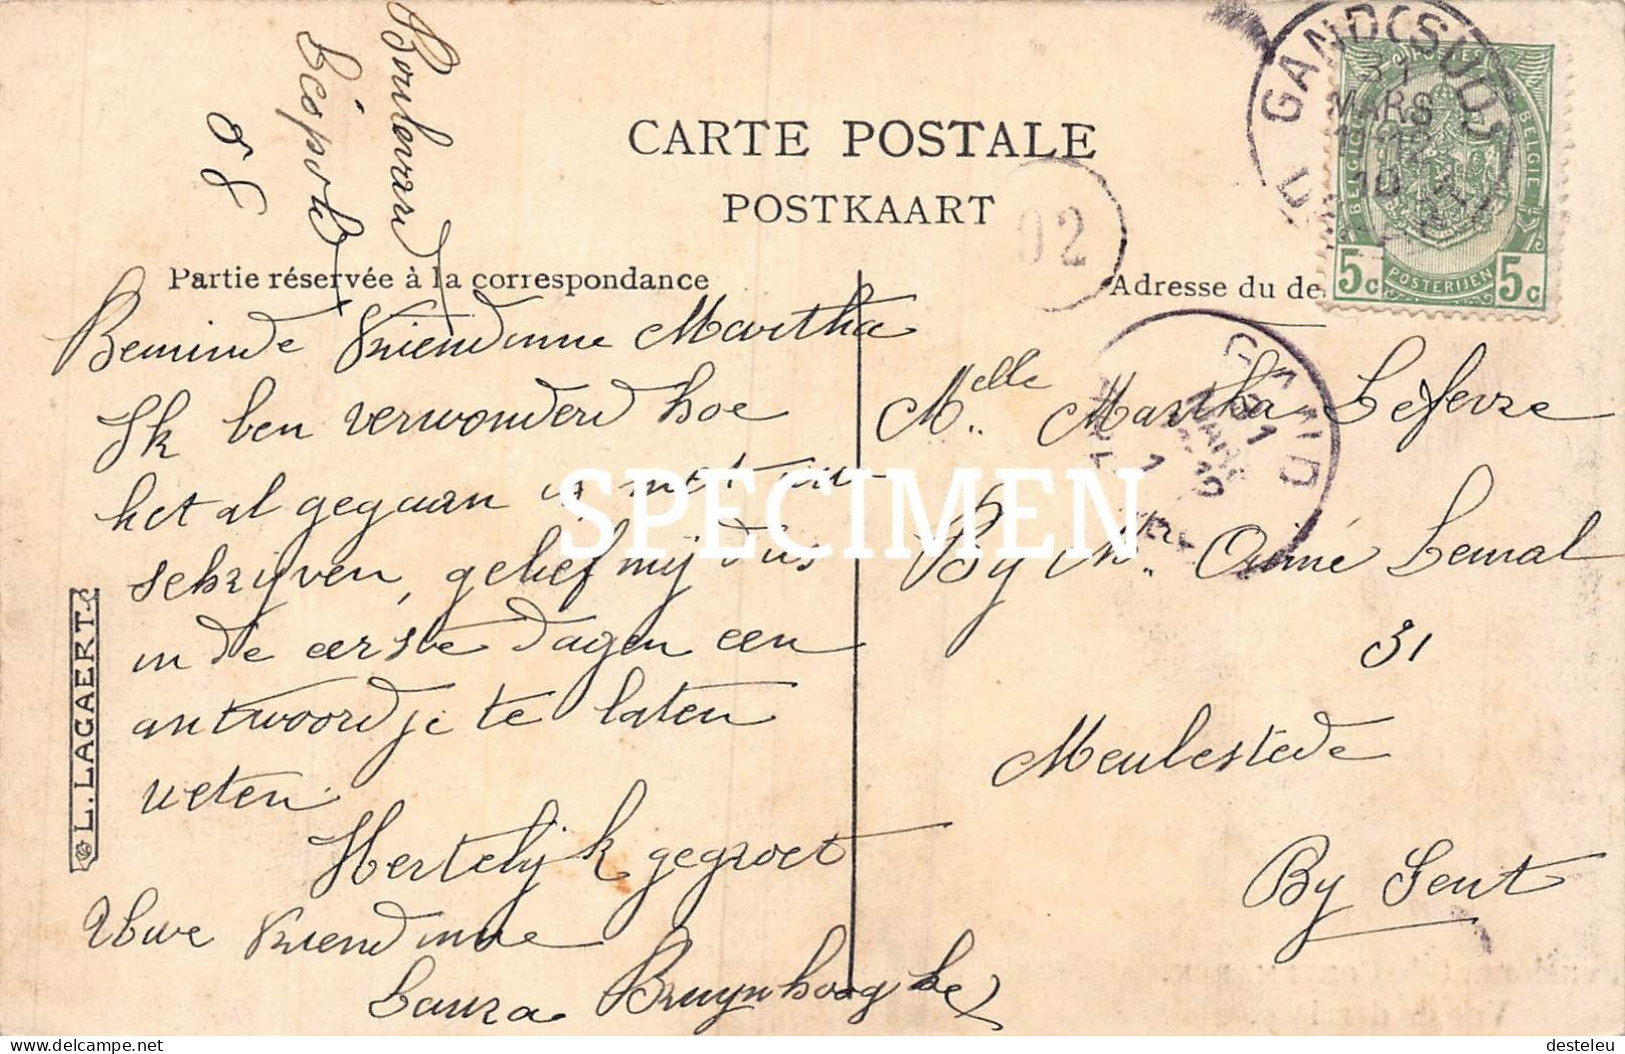 Boulevard
Léopold
58
CARTE POSTALE
POSTKAART
Partie réservée à la correspondance
Adresse du de
GAND (SUD)
MARS
10
POSTES
BELGIQUE
BELGIË
5c POSTERIJEN 5c
02
GAND
Beminde Vriendinne Martha
Ik ben verwonderd hoe
het al gegaan is met
schrijven, gelief mij dus
in de eerste dagen een
antwoordje te laten
weten.
Hertelijk gegroet
Uwe Vriendinne
Laura Bruynhooghe
Melle Martha Lefevre
By Mr. Aimé Lemal
31
Meulestede
By Gent
L. LAGAERT
SPECIMEN
delcampe.net
desteleu